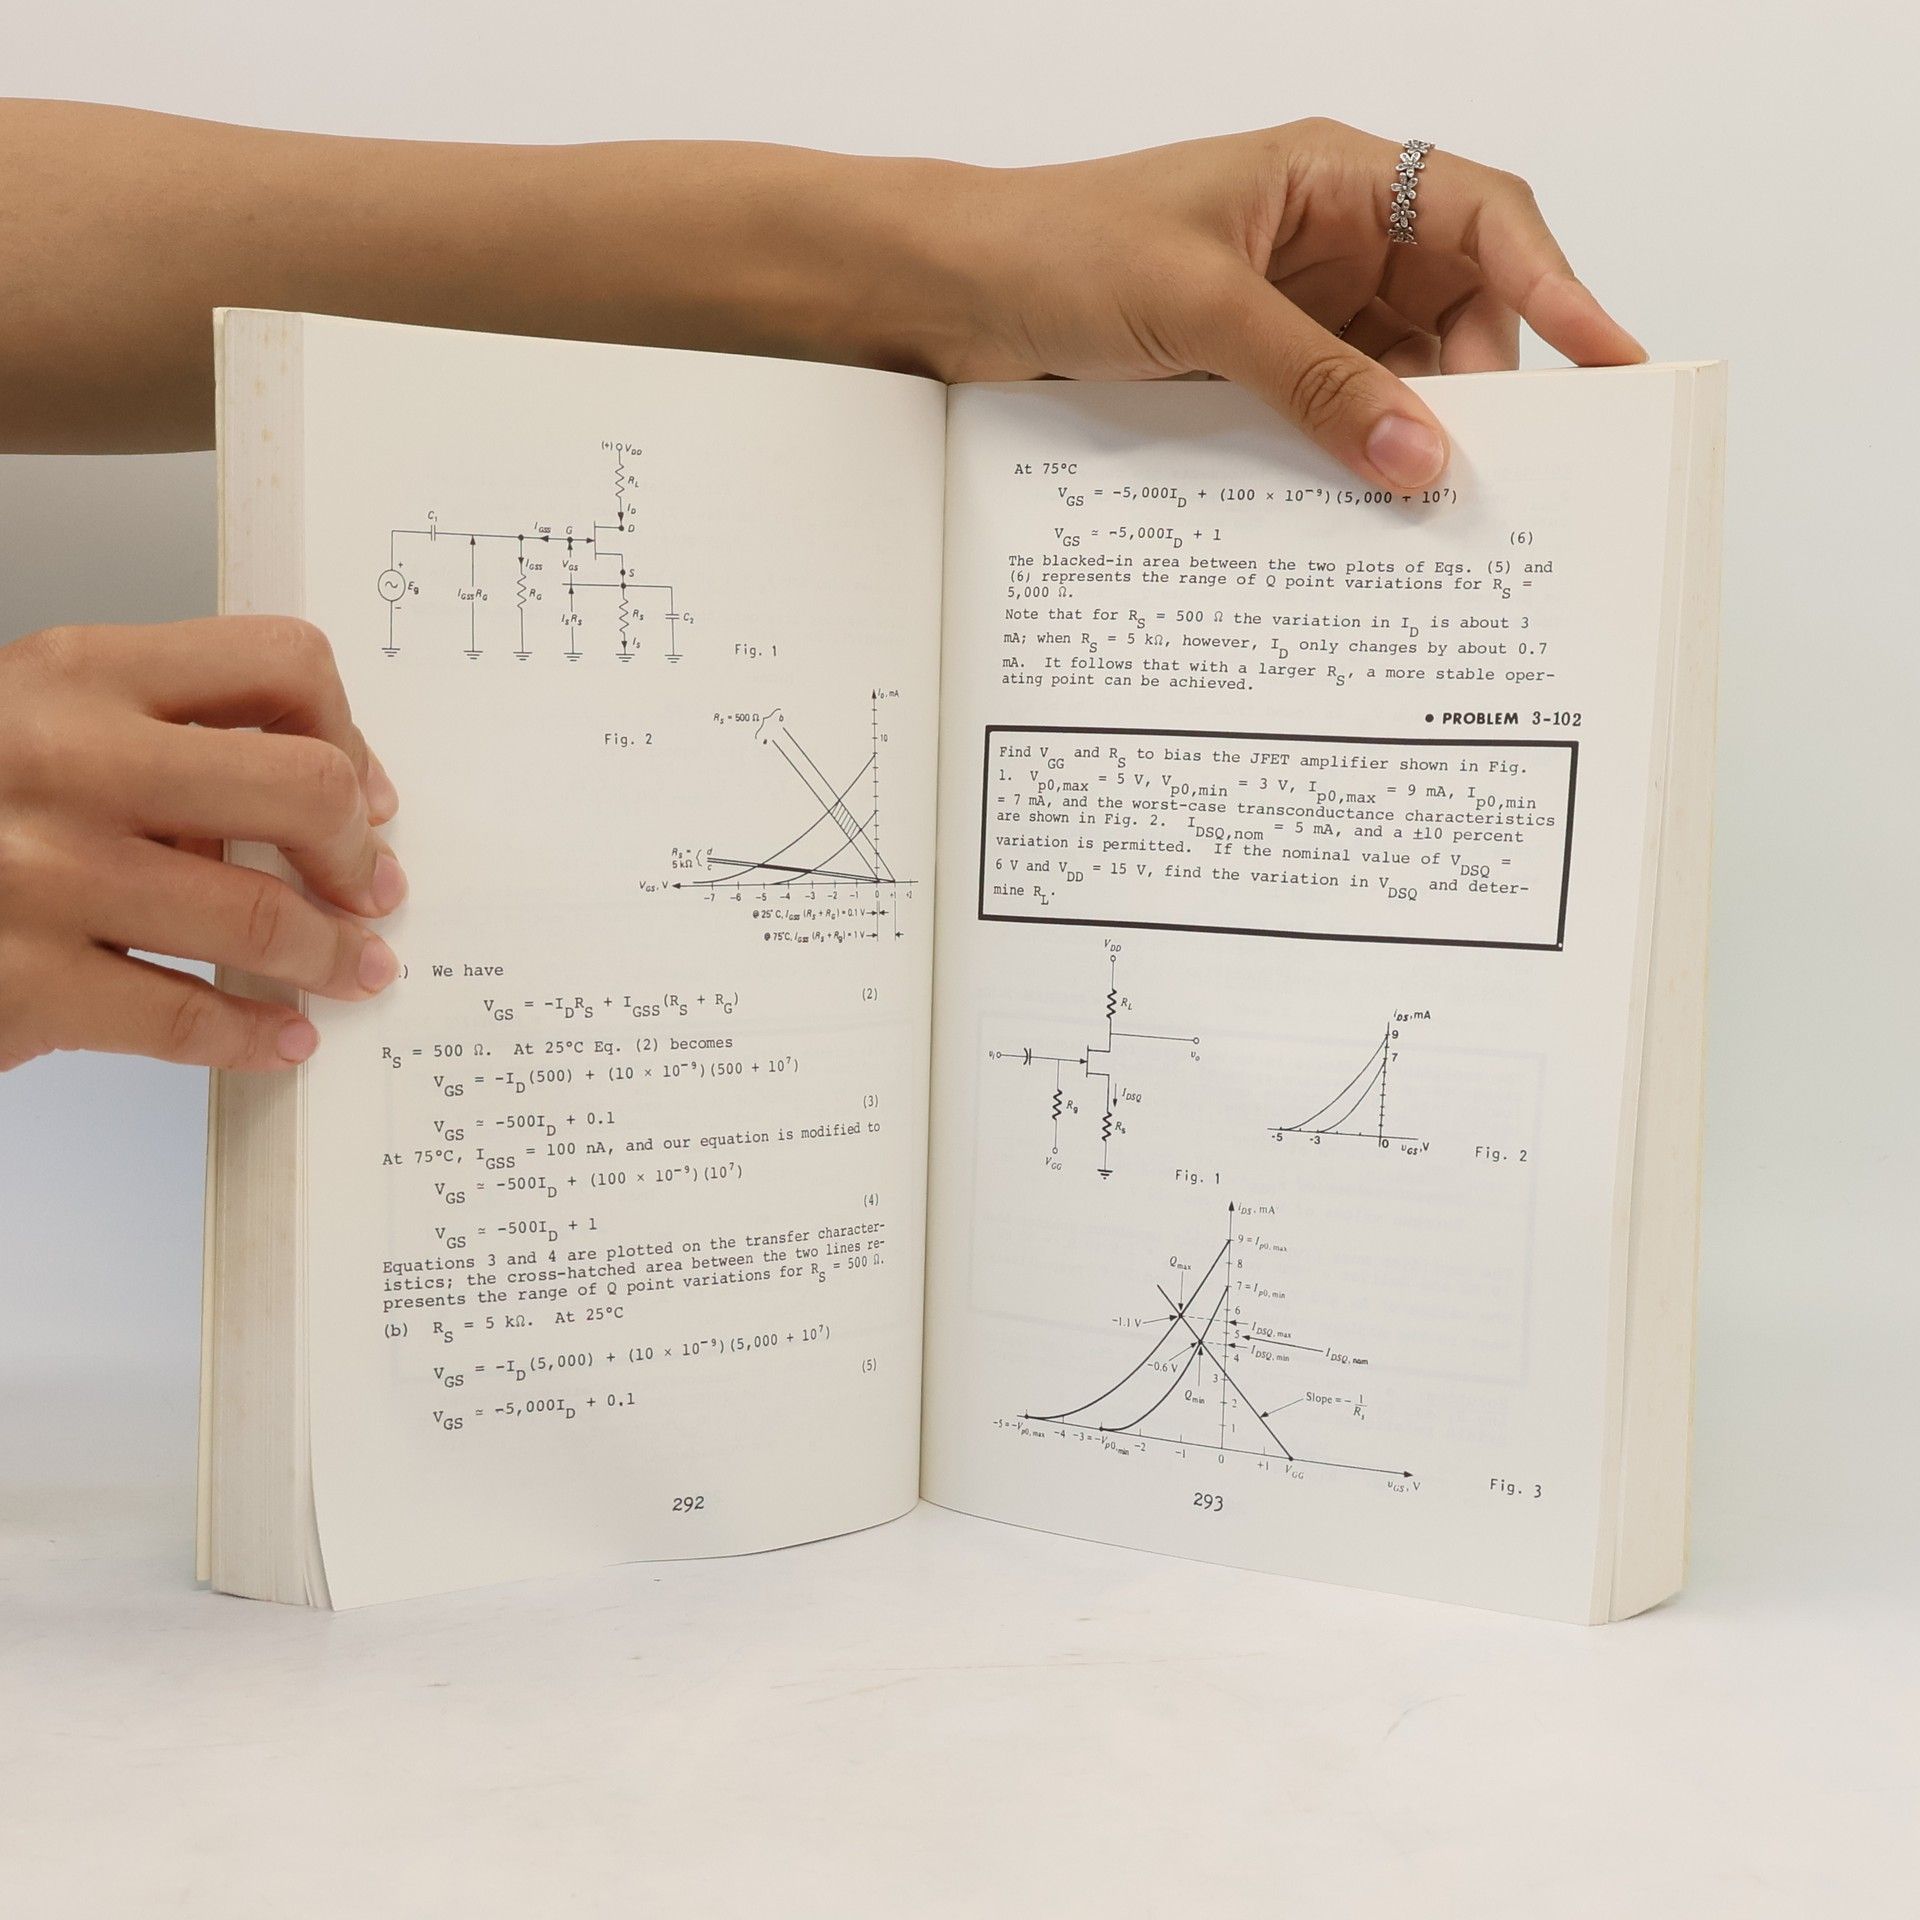 (+) V_DD
R_L
I_D
D
C_1
I_GSS G
I_GSS
V_GS
S
+
E_g
−
I_GSS R_G
R_G
I_S R_S
R_S
C_2
I_S
Fig. 1
I_D, mA
R_S = 500 Ω { b
a
10
Fig. 2
R_S = 5 kΩ { d
c
V_GS, V
-7 -6 -5 -4 -3 -2 -1 0 +1 +2
@ 25°C, I_GSS (R_S + R_G) = 0.1 V
@ 75°C, I_GSS (R_S + R_g) = 1 V
) We have
V_GS = -I_D R_S + I_GSS (R_S + R_G) (2)
R_S = 500 Ω. At 25°C Eq. (2) becomes
V_GS = -I_D (500) + (10 × 10⁻⁹)(500 + 10⁷)
(3)
V_GS ≃ -500I_D + 0.1
At 75°C, I_GSS = 100 nA, and our equation is modified to
V_GS ≃ -500I_D + (100 × 10⁻⁹)(10⁷)
(4)
V_GS ≃ -500I_D + 1
Equations 3 and 4 are plotted on the transfer character-
istics; the cross-hatched area between the two lines re-
presents the range of Q point variations for R_S = 500 Ω.
(b) R_S = 5 kΩ. At 25°C
V_GS = -I_D (5,000) + (10 × 10⁻⁹)(5,000 + 10⁷)
(5)
V_GS ≃ -5,000I_D + 0.1
292
At 75°C
V_GS = -5,000I_D + (100 × 10⁻⁹)(5,000 + 10⁷)
V_GS ≃ -5,000I_D + 1 (6)
The blacked-in area between the two plots of Eqs. (5) and
(6) represents the range of Q point variations for R_S =
5,000 Ω.
Note that for R_S = 500 Ω the variation in I_D is about 3
mA; when R_S = 5 kΩ, however, I_D only changes by about 0.7
mA. It follows that with a larger R_S, a more stable oper-
ating point can be achieved.
● PROBLEM 3-102
Find V_GG and R_S to bias the JFET amplifier shown in Fig.
1. V_p0,max = 5 V, V_p0,min = 3 V, I_p0,max = 9 mA, I_p0,min
= 7 mA, and the worst-case transconductance characteristics
are shown in Fig. 2. I_DSQ,nom = 5 mA, and a ±10 percent
variation is permitted. If the nominal value of V_DSQ =
6 V and V_DD = 15 V, find the variation in V_DSQ and deter-
mine R_L.
V_DD
R_L
v_i
v_o
I_DSQ
R_g
R_s
V_GG
Fig. 1
i_DS, mA
9
7
-5 -3 0 v_GS, V
Fig. 2
i_DS, mA
9 = I_p0, max
Q_max
8
7 = I_p0, min
6
-1.1 V
I_DSQ, max
5
I_DSQ, nom
I_DSQ, min
4
-0.6 V
3
Q_min
2
Slope = - 1/R_s
1
-5 = -V_p0, max -4 -3 = -V_p0, min -2 -1 0 +1 V_GG
v_GS, V
Fig. 3
293